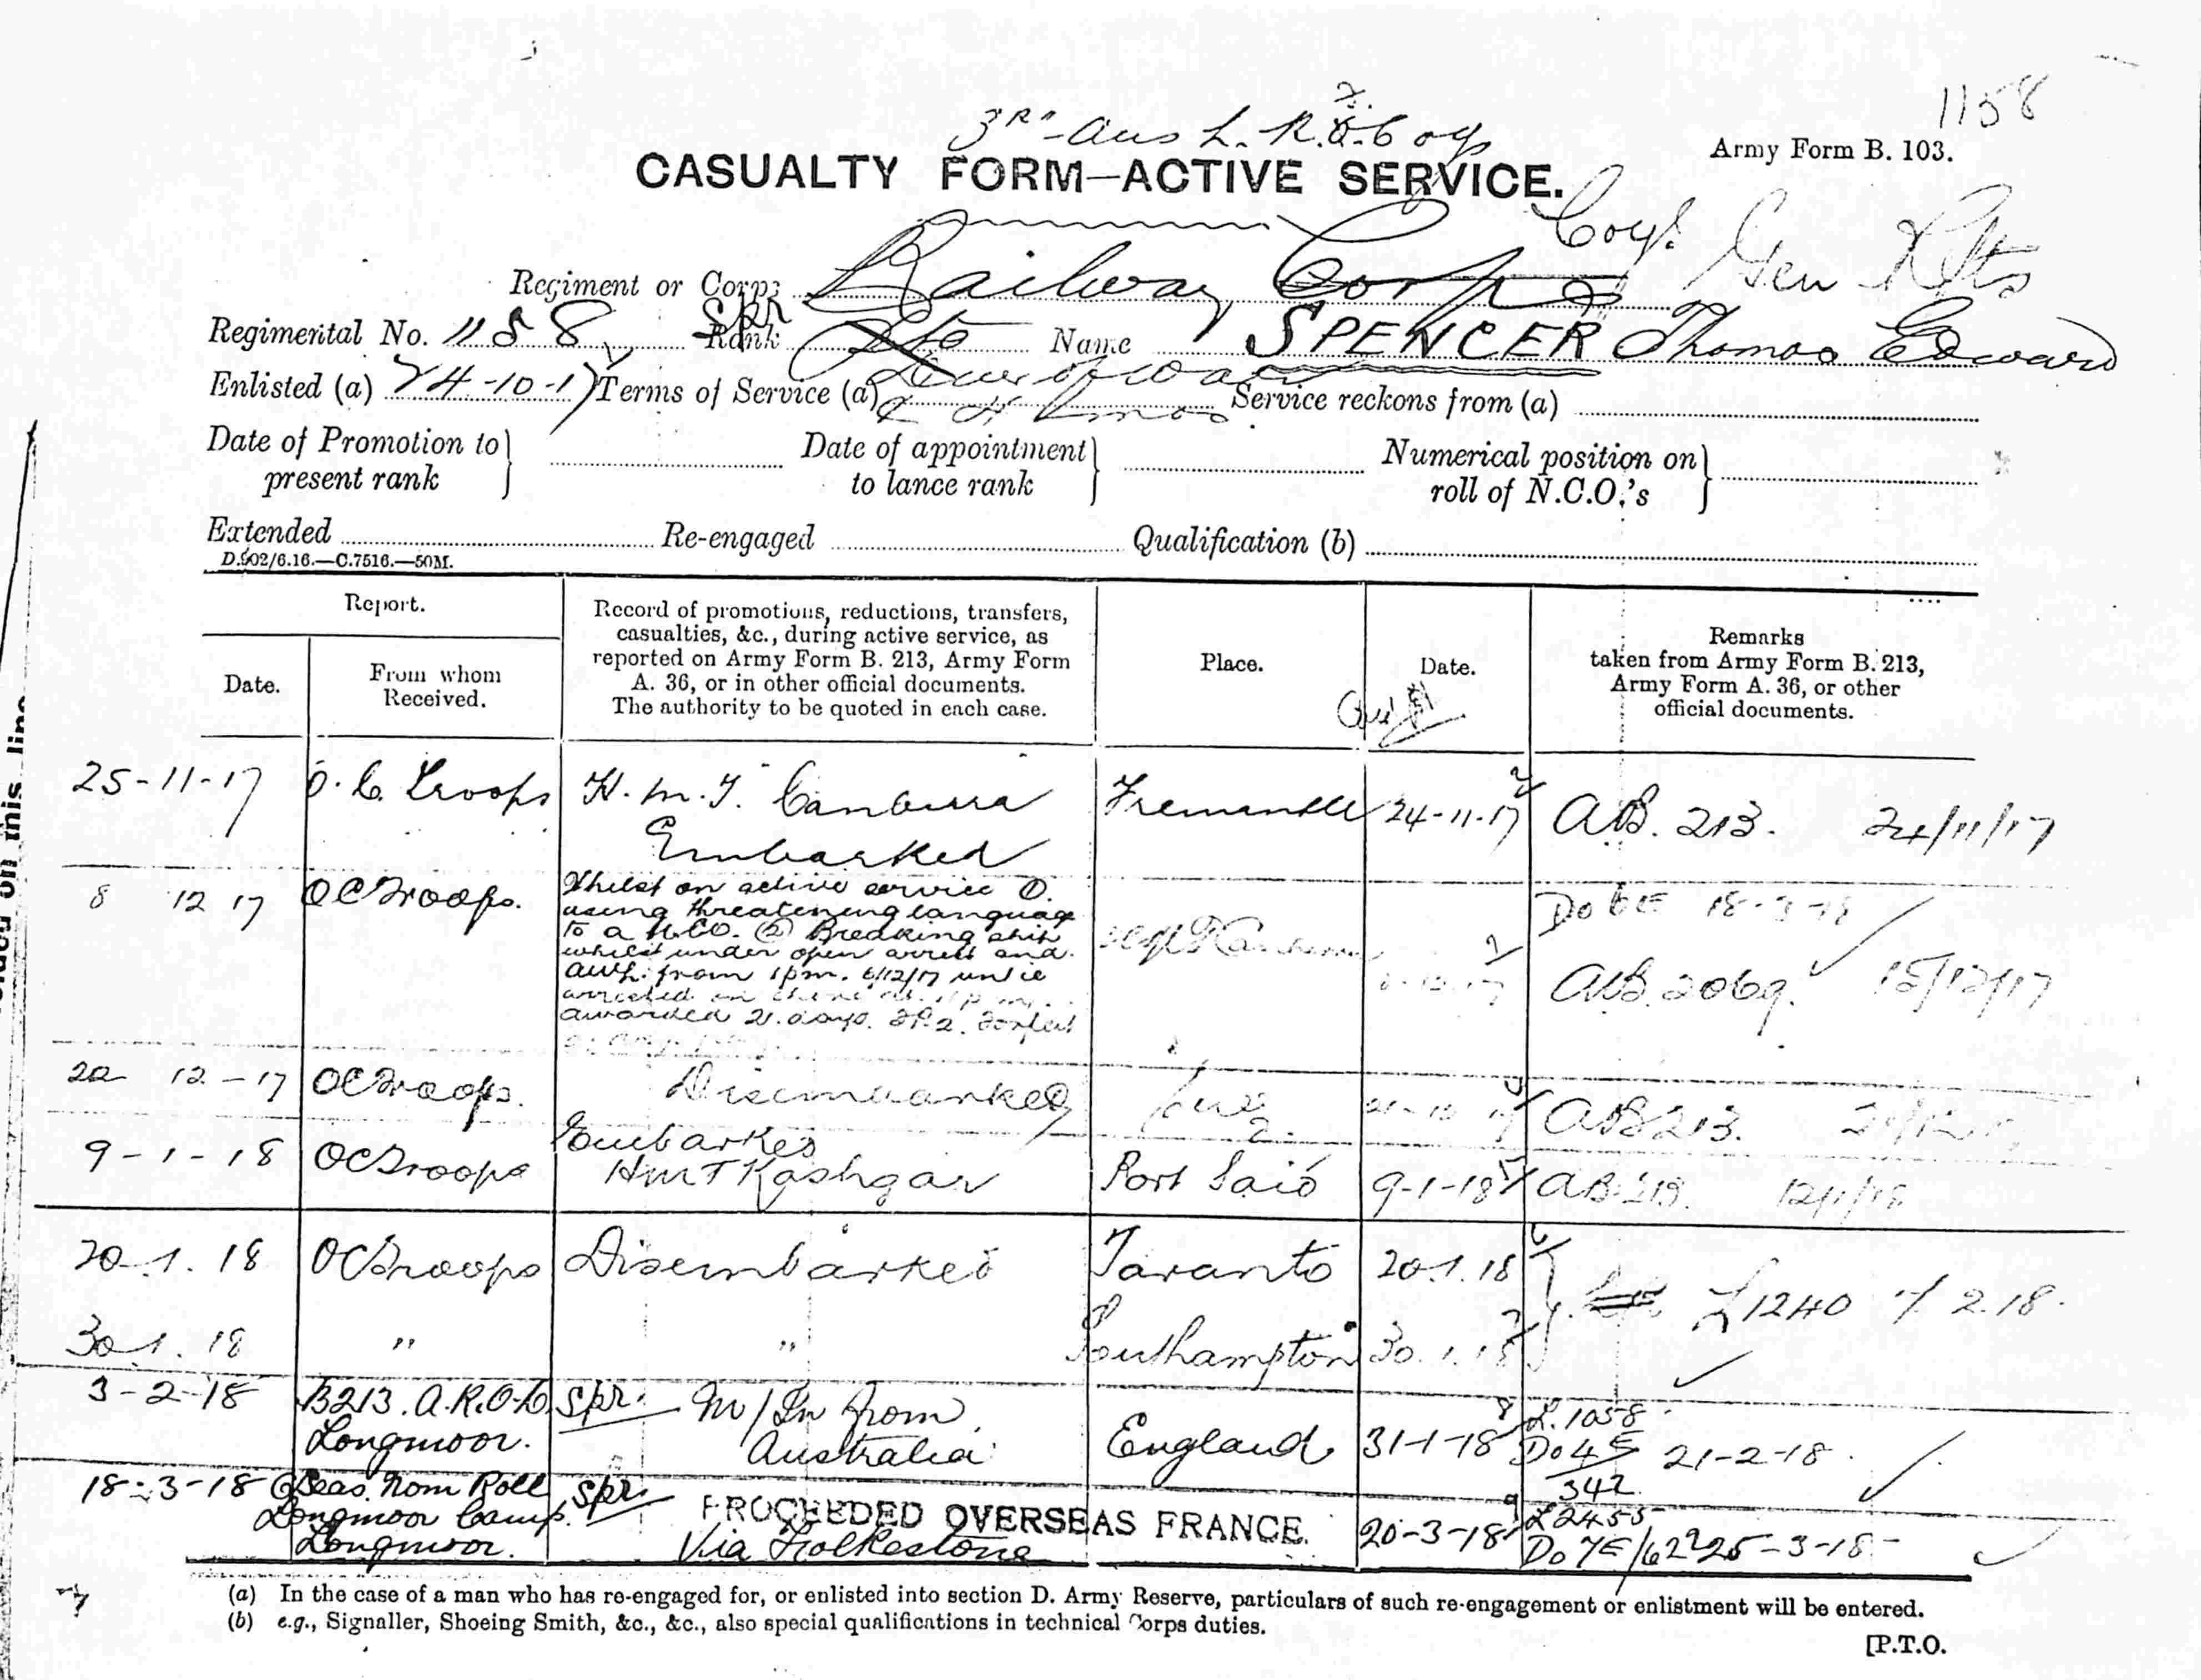 1158
3RD Aus L. R. O. Coy
Army Form B. 103.
CASUALTY FORM—ACTIVE SERVICE.
Coy. Gen Rfts
Regiment or Corps Railway Corps
Regimental No. 1158 Spr Rank Pte Name SPENCER Thomas Edward
Enlisted (a) 24-10-17 Terms of Service (a) Dur of War & 4 mos Service reckons from (a)
Date of Promotion to present rank
Date of appointment to lance rank
Numerical position on roll of N.C.O.'s
Extended Re-engaged Qualification (b)
D.902/6.16.—C.7516.—50M.
Report.
Date.
From whom Received.
Record of promotions, reductions, transfers,
casualties, &c., during active service, as
reported on Army Form B. 213, Army Form
A. 36, or in other official documents.
The authority to be quoted in each case.
Place.
Date.
Remarks
taken from Army Form B. 213,
Army Form A. 36, or other
official documents.
25-11-17 O.C. Troops H.M.T. Canberra Fremantle 24-11-17 AB. 213. 24/11/17
Embarked
8 12 17 OC Troops. Whilst on active service ①.
using threatening language
to a NCO. ② Breaking ship
whilst under open arrest and
AWL. from 1pm. 6/12/17 until
arrested on shore at 11 pm.
awarded 21 days. FP.2. Forfeit
HMT Canberra
Do 6E 18-3-18
AB. 2069. 15/12/17
22 12-17 OC Troops. Disembarked Suez AB 213.
9-1-18 OC Troops Embarked
HMT Kashgar Port Said 9-1-18 AB 213. 12/1/18
20.1.18 OC Troops Disembarked Taranto 20.1.18
L1240 2.18.
30.1.18 " " Southampton 30.1.18
3-2-18 B213. A.R.O.D. Longmoor. Spr. M/In from Australia England 31-1-18 L.1058 Do 4E/342 21-2-18
18-3-18 O/Seas Nom Roll Longmoor Camp. Longmoor. Spr. PROCEEDED OVERSEAS FRANCE. Via Folkestone 20-3-18 L2455 Do 7E/62 25-3-18
(a) In the case of a man who has re-engaged for, or enlisted into section D. Army Reserve, particulars of such re-engagement or enlistment will be entered.
(b) e.g., Signaller, Shoeing Smith, &c., &c., also special qualifications in technical Corps duties.
[P.T.O.